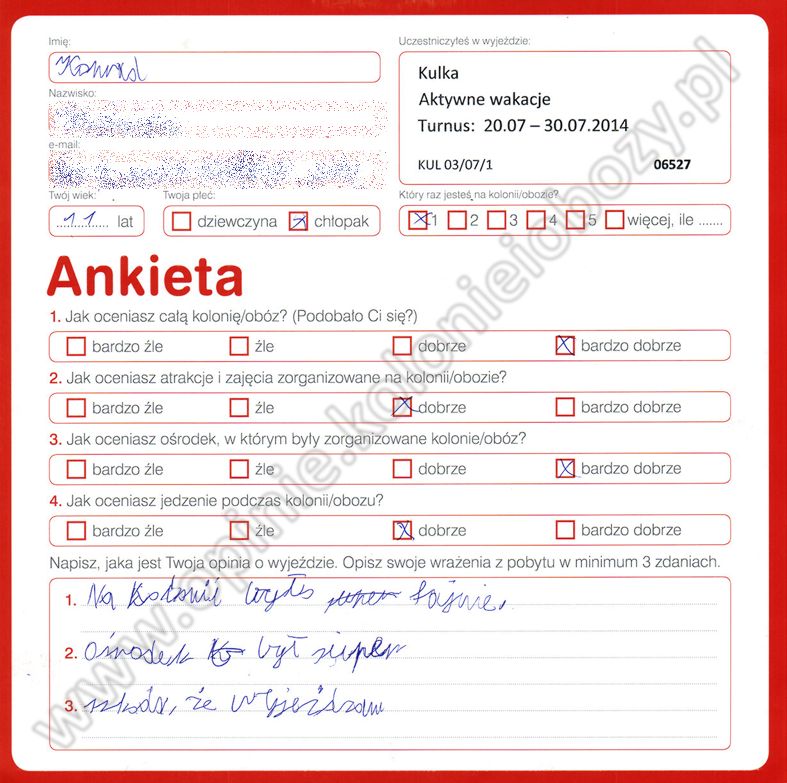 Imię:
Uczestniczyłeś w wyjeździe:
Konrad
Kulka
Aktywne wakacje
Turnus: 20.07 – 30.07.2014
KUL 03/07/1 06527
Nazwisko:
e-mail:
Twój wiek:
Twoja płeć:
Który raz jesteś na kolonii/obozie?
11 lat
dziewczyna chłopak
1 2 3 4 5 więcej, ile .......
Ankieta
1. Jak oceniasz całą kolonię/obóz? (Podobało Ci się?)
bardzo źle źle dobrze bardzo dobrze
2. Jak oceniasz atrakcje i zajęcia zorganizowane na kolonii/obozie?
bardzo źle źle dobrze bardzo dobrze
3. Jak oceniasz ośrodek, w którym były zorganizowane kolonie/obóz?
bardzo źle źle dobrze bardzo dobrze
4. Jak oceniasz jedzenie podczas kolonii/obozu?
bardzo źle źle dobrze bardzo dobrze
Napisz, jaka jest Twoja opinia o wyjeździe. Opisz swoje wrażenia z pobytu w minimum 3 zdaniach.
1. Na kolonii było fajnie.
2. ośrodek był super
3. szkoda, że wyjeżdzam
www.opinie.kolonieiobozy.pl